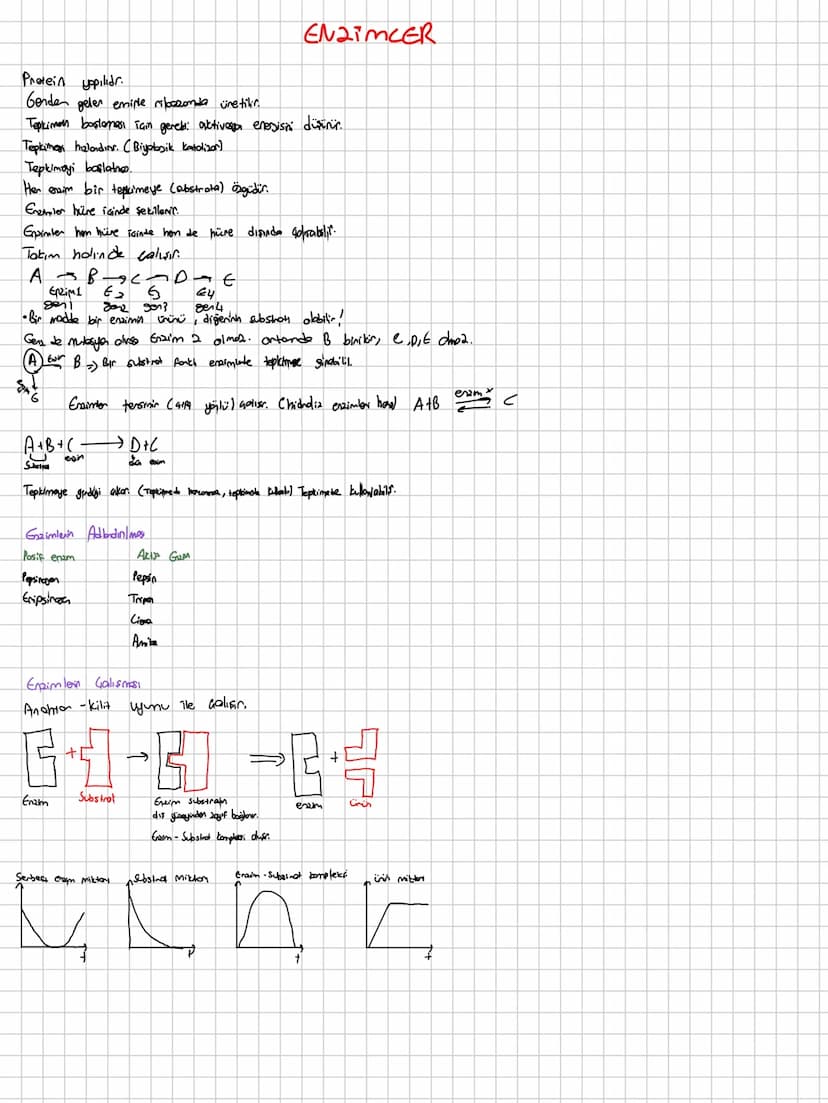 ENZİMLER
Protein yapılıdr.
Genden gelen emirle ribozomda üretilir.
Tepkimenin başlaması için gerekli aktivasyon enerjisini düşürür.
Tepkimeyi hızlandırır. (Biyolojik katalizör)
Tepkimeyi başlatmaz.
Her enzim bir tepkimeye (substrata) özgüdür.
Enzimler hücre içinde sentezlenir.
Enzimler hem hücre içinde hem de hücre dışında çalışabilir.
Takım halinde çalışır.
A → B → C → D → E
Enzim1 E2 E3 E4
gen1 gen2 gen3 gen4
• Bir madde bir enzimin ürünü, diğerinin substratı olabilir!
Gen 2 de mutasyon olursa Enzim 2 olmaz. ortamda B birikir, C, D, E olmaz.
A B => Bir substrat farklı enzimlerle tepkimeye girebilir.
6
Enzimler tersinir (çift yönlü) çalışır. (hidroliz enzimleri hariç) A+B enzim x C
A+B+C → D+C
enzim
Tepkimeye girdiği çıkar. Tepkimede kullanılabilir.
Enzimlerin Adlandırılması
Pasif enzim Aktif Enzim
Pepsinojen Pepsin
Tripsinojen Tripsin
Lipaz
Amilaz
Enzimlerin Çalışması
Anahtar - kilit uyumu ile çalışır.
+ → => +
Enzim Substrat Enzim substratın enzim ürün
dış yüzeyinden zayıf bağlanır.
Enzim - Substrat kompleksi oluşur.
Serbest enzim miktarı Substrat Miktarı Enzim - Substrat kompleksi ürün miktarı
t t t t